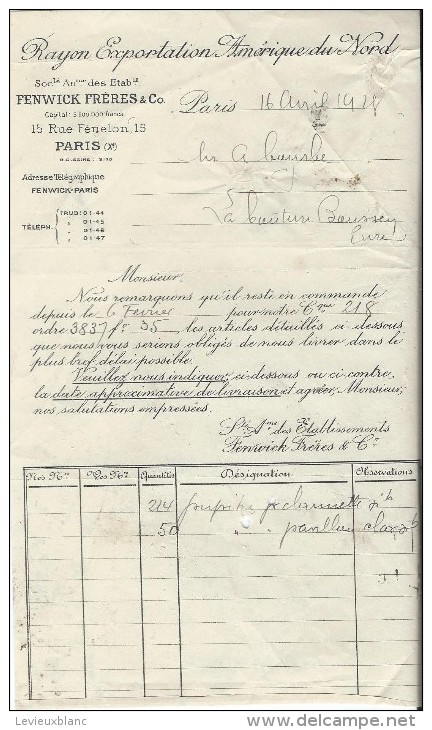 Rayon Exportation Amérique du Nord
Socté Anme des Etabts
FENWICK FRÈRES & Co.
Capital: 5.800.000 francs
15 Rue Fénelon, 15
PARIS (Xe)
R.C. SEINE:
Paris 16 Avril 19
Mr A
Adresse Télégraphique
FENWICK-PARIS
TÉLÉPH. TRUD: 01-44
" 01-45
" 01-46
" 01-47
La Couture Boussey
Eure
Monsieur,
Nous remarquons qu'il reste en commande
depuis le 6 Février pour notre Cme 218
ordre 3837 fo 35 les articles détaillés ci-dessous
que nous vous serions obligés de nous livrer dans le
plus bref délai possible.
Veuillez nous indiquer, ci-dessous ou ci-contre,
la date approximative de livraison et agréer, Monsieur,
nos salutations empressées.
Sté Ame des Etablissements
Fenwick Frères & Cie
Nos Nos Vos Nos Quantités Désignation Observations
214 pupitre pr clarinette
50 " " pavillon
Levieuxblanc
delcampe.net